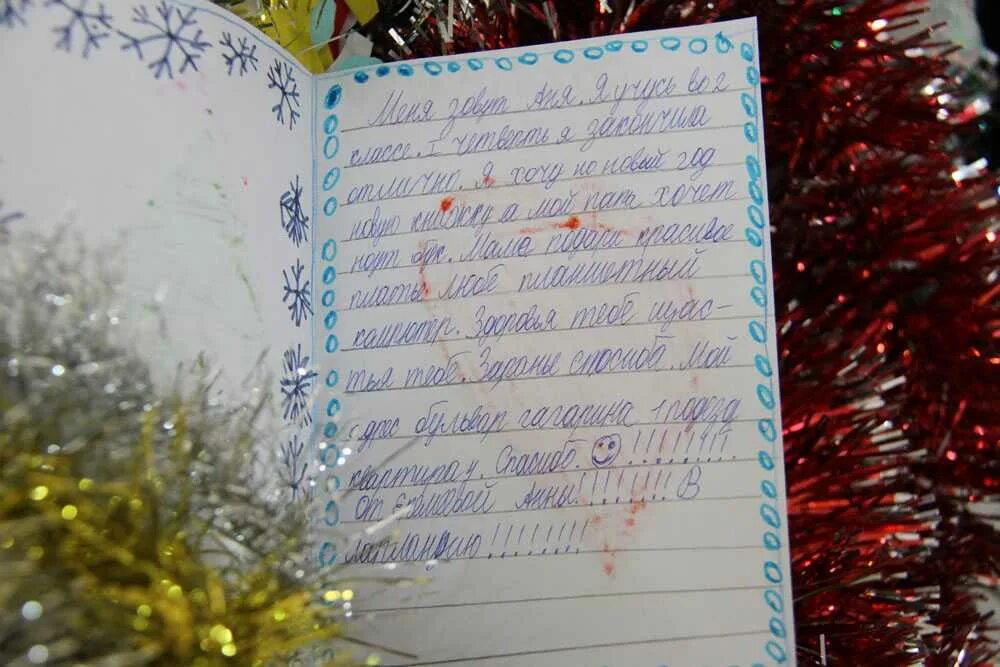 Меня зовут Аня. Я учусь во 2
классе. I четверть я закончила
отлично. Я хочу но новый год
новую книжку а мой папа хочет
ноут бук. Маме подари красивое
платье Любе планшетный
кампютер. Здоровья тебе щас-
тья тебе. Заранье спосибо. Мой
адрес бульвар гагарина 1 подезд
квартира 4. Спасибо. !!!!!!!!!
от Анны!!!!!!!!! В
лапландию!!!!!!!!!